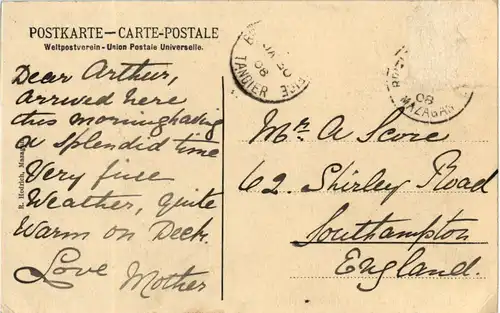 POSTKARTE — CARTE-POSTALE
Weltpostverein - Union Postale Universelle.
Dear Arthur,
Arrived here
this morning having
a splendid time
Very fine
Weather, quite
Warm on Deck.
Love Mother
R. Hedrich,
TANGIER
JA 20
08
08
MAZAGAN
Mr. A Score
62. Shirley Road
Southampton
England.